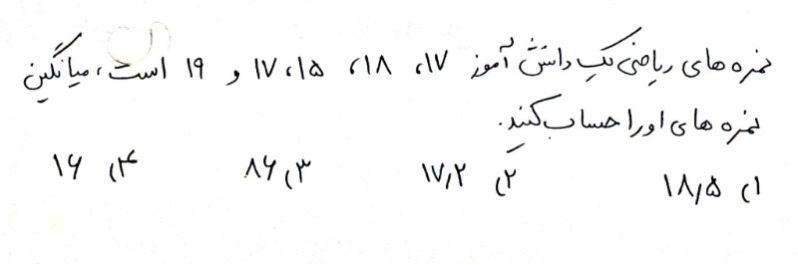 نمره های ریاضی یک دانش آموز ۱۷، ۱۸، ۱۵، ۱۷ و ۱۹ است، میانگین
نمره های او را حساب کنید.
۱) ۱۸٫۵ ۲) ۱۷٫۲ ۳) ۸۶ ۴) ۱۶